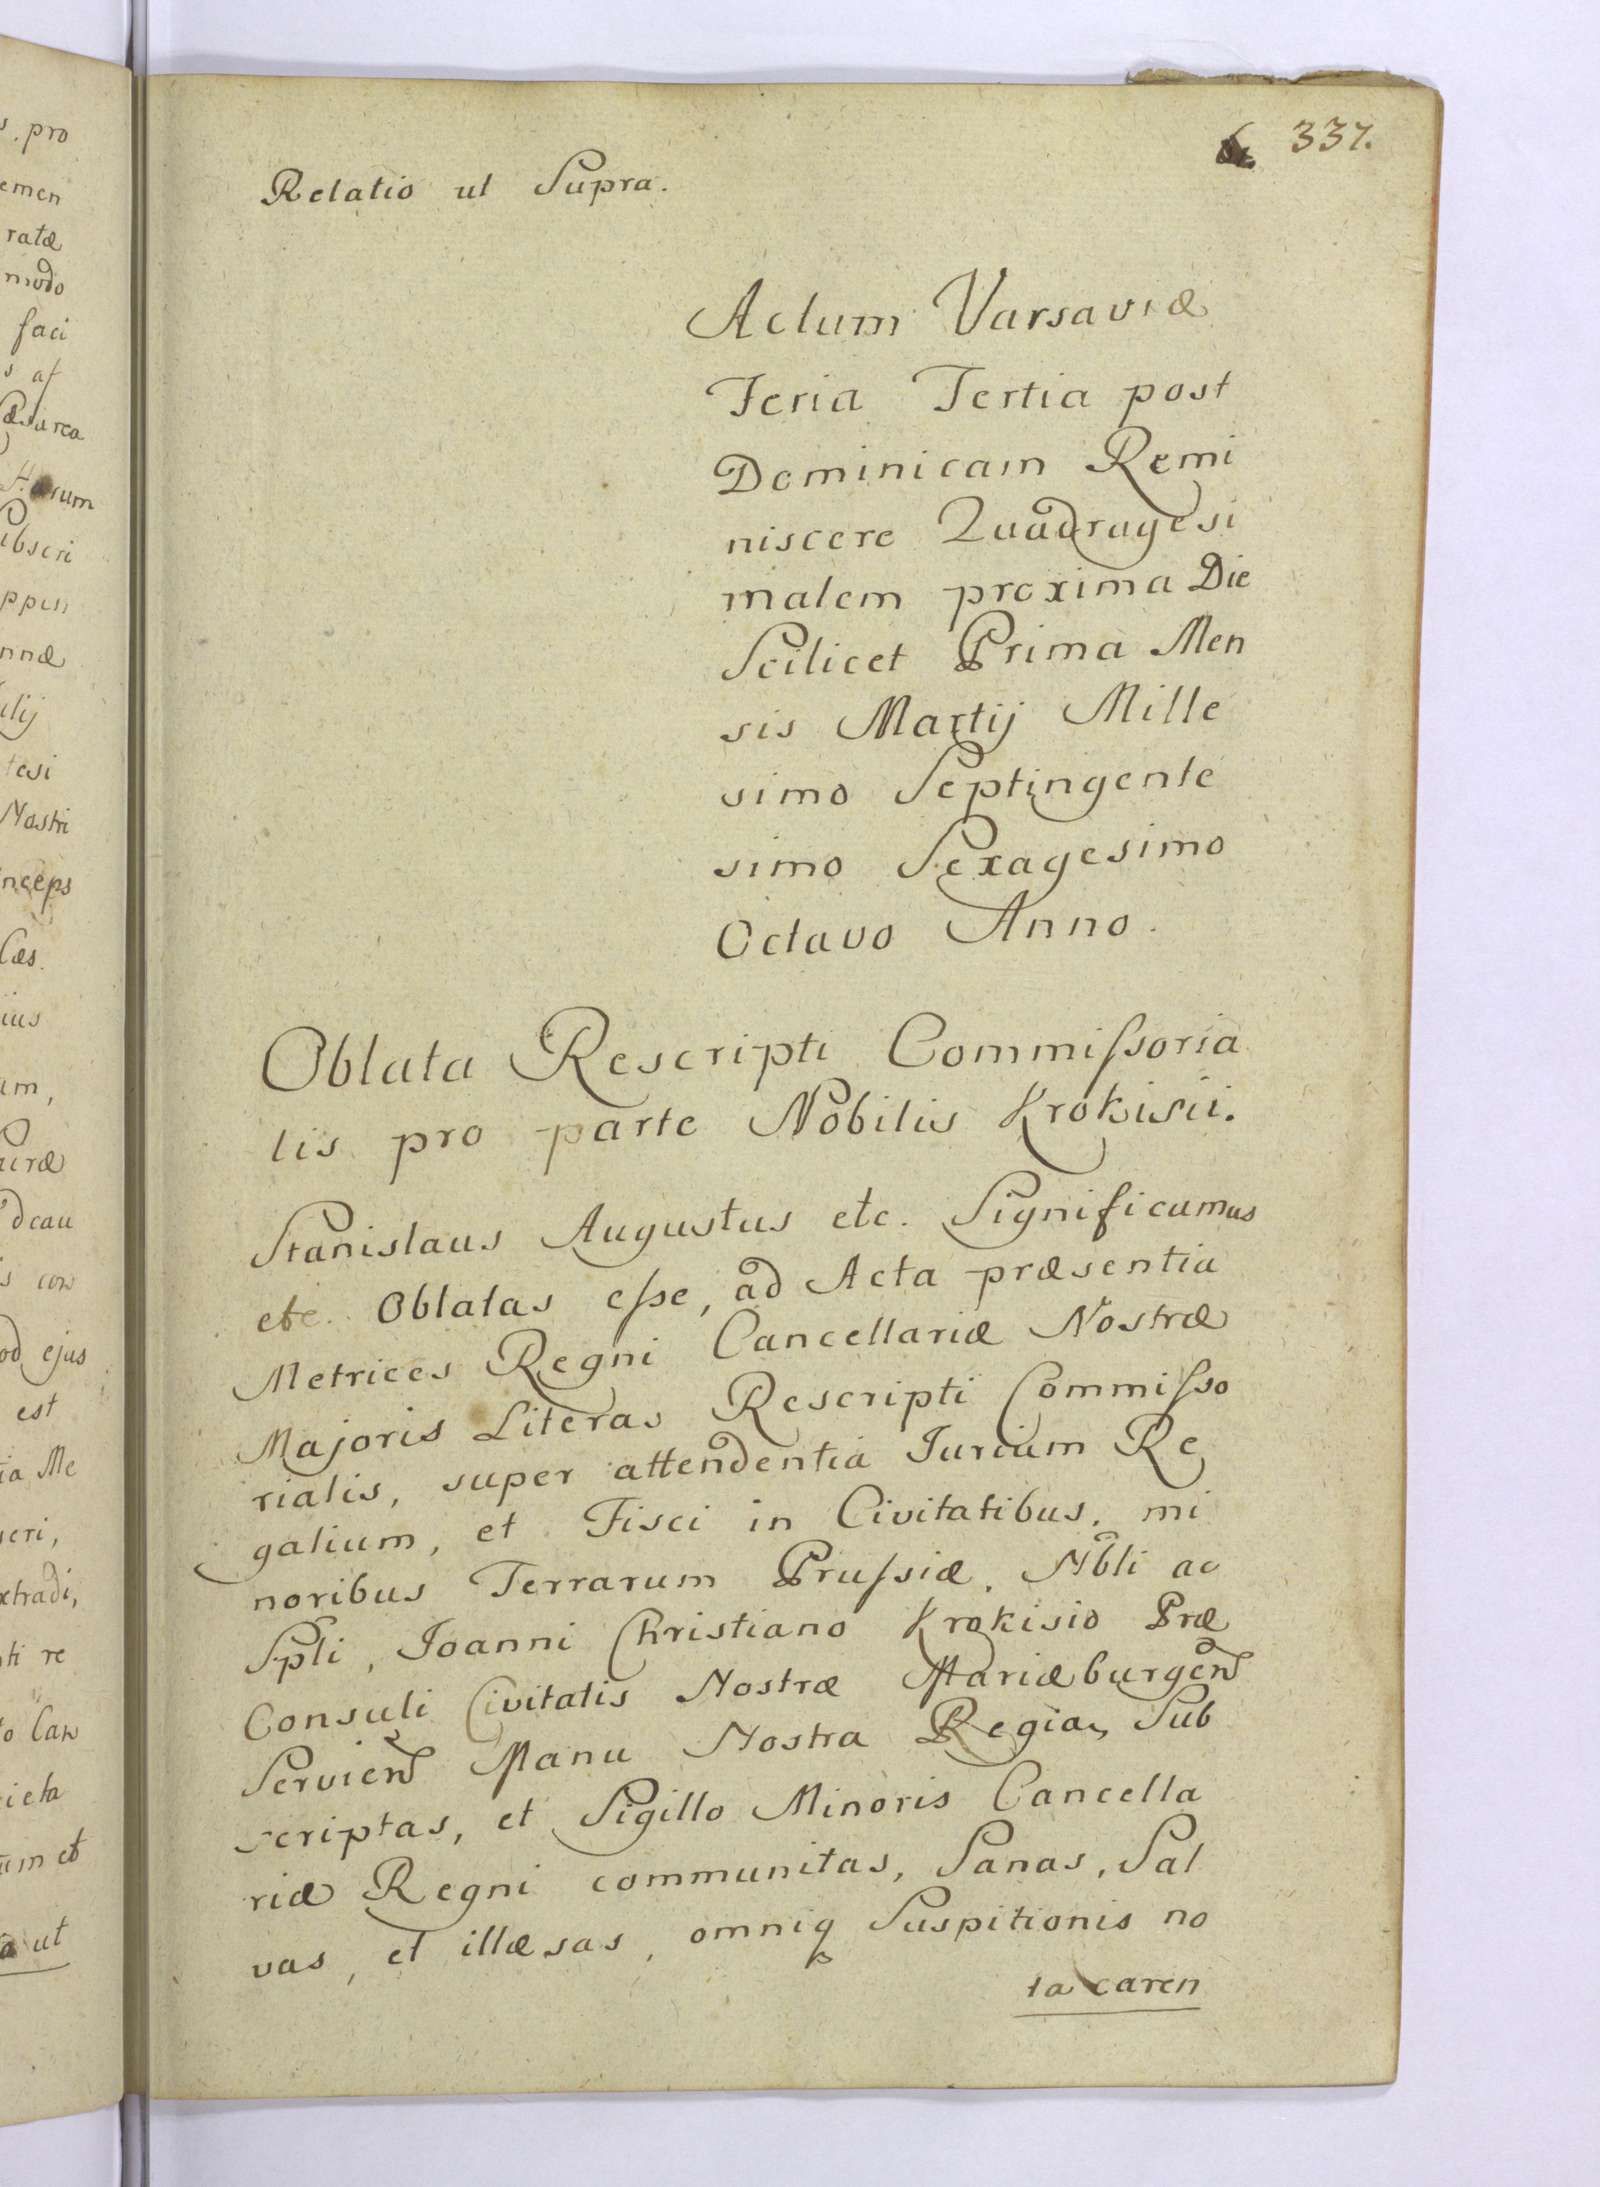 337.
Relatio ut Supra.
Actum Varsaviæ
Feria Tertia post
Dominicam Remi
niscere Quadragesi
malem proxima Die
Scilicet Prima Men
sis Martij Mille
simo Septingente
simo Sexagesimo
Octavo Anno.
Oblata Rescripti Commiſsoria
lis pro parte Nobilis Krokisii.
Stanislaus Augustus etc. Significamus
etc. Oblatas eſse, ad Acta præsentia
Metrices Regni Cancellariæ Nostræ
Majoris Literas Rescripti Commiſso
rialis, super attendentia Jurium Re
galium, et Fisci in Civitatibus, mi
noribus Terrarum Pruſsiæ, Nbli ac
Spli, Joanni Christiano Krokisio Præ
Consuli Civitatis Nostræ Mariæburgen
Servien Manu Nostra Regia, Sub
scriptas, et Sigillo Minoris Cancella
riæ Regni communitas, Sanas, Sal
vas, et illæsas, omniq Suspitionis no
ta caren
s. pro
emen
ratæ
modo
faci
s aſ
ibscri
nnæ
tesi
Nostri
nceps
Cæs.
um,
dcau
s con
od ejus
est
ia Me
xtradi,
ti re
to Can
um et
ut